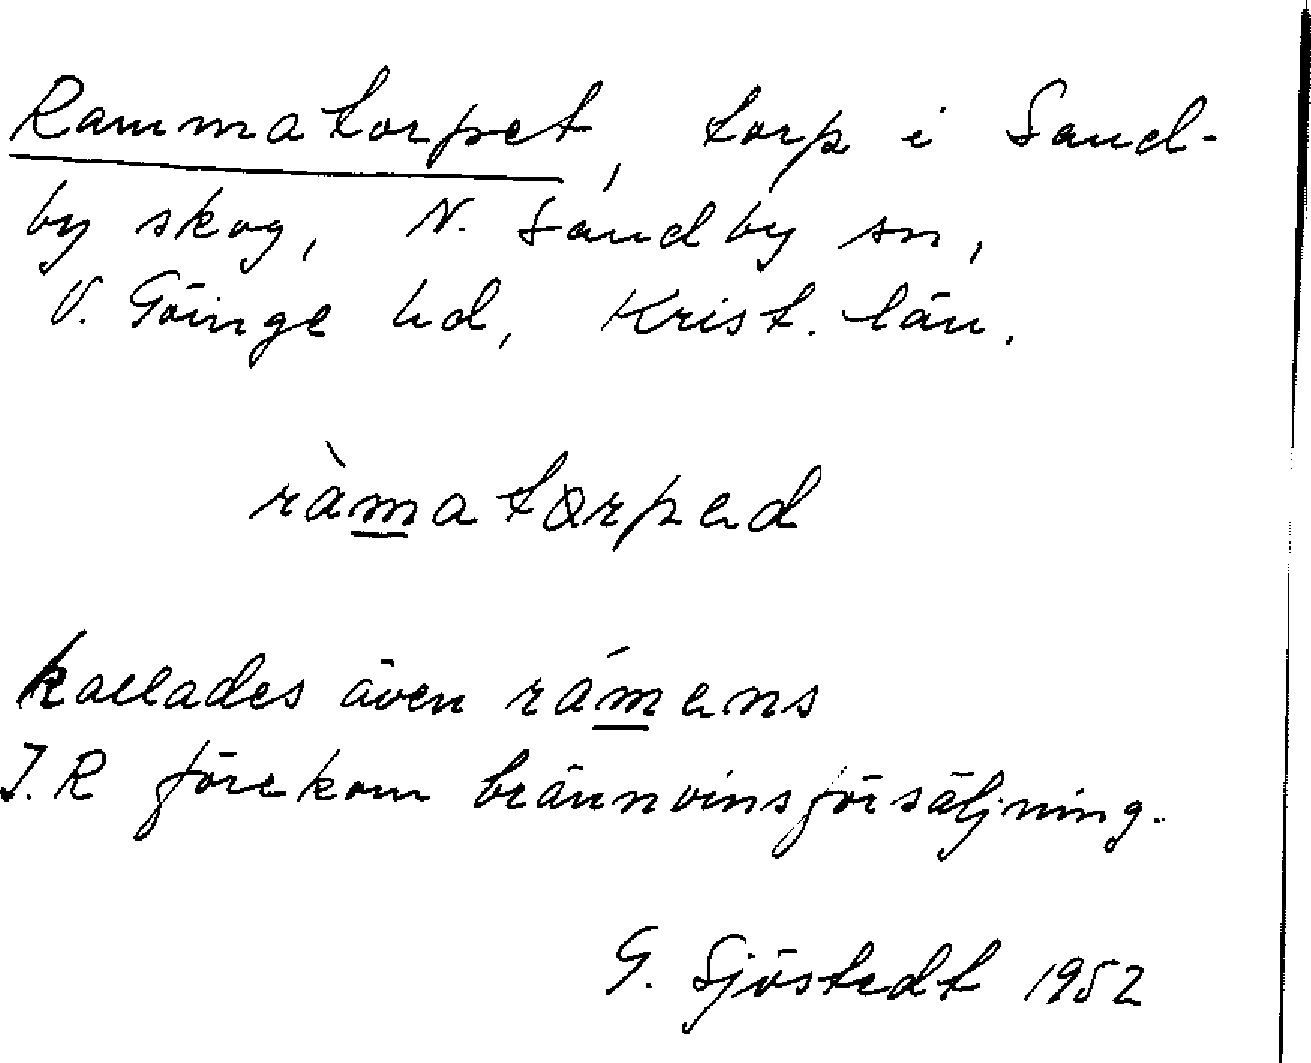 Rammatorpet, torp i Sand-
by skog, N. Sandby sn,
V. Göinge hd, Krist. län.
ràmatorped
kallades även rámens
I.R förekom brännvinsförsäljning.
G. Sjöstedt 1952